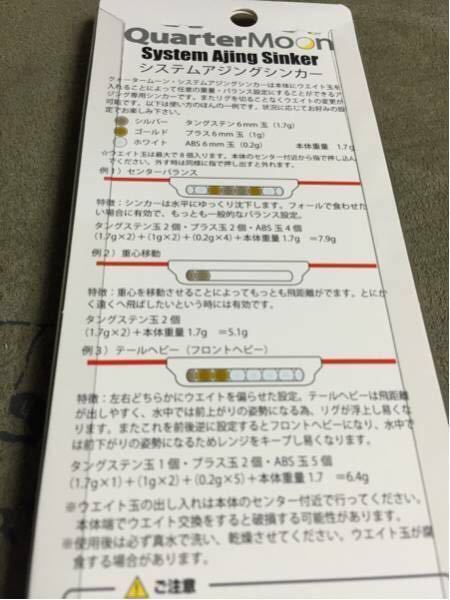 QuarterMoon
System Ajing Sinker
システムアジングシンカー
クォータームーン・システムアジングシンカーは本体にウエイト玉を
入れることによって任意の重量・バランス設定にすることができるア
ジング専用シンカーです。またリグを切ることなくウエイトの変更が
可能です。以下は使い方のほんの一例です。状況に応じてお好みの設
定でお楽しみ下さい。
シルバー タングステン6mm玉 (1.7g)
ゴールド ブラス6mm玉 (1g)
ホワイト ABS6mm玉 (0.2g) 本体重量 1.7g
☆ウエイト玉は最大で8個入ります。本体のセンター付近から指で押し込ん
でください。外す時は同様に指で押し出すと外れます。
例1) センターバランス
特徴:シンカーは水平にゆっくり沈下します。フォールで食わせた
い場合に有効で、もっとも一般的なバランス設定。
タングステン玉2個・ブラス玉2個・ABS玉4個
(1.7g×2)+(1g×2)+(0.2g×4)+本体重量1.7g =7.9g
例2) 重心移動
特徴:重心を移動させることによってもっとも飛距離がでます。とにか
く遠くへ飛ばしたいという時には有効です。
タングステン玉2個
(1.7g×2)+本体重量1.7g =5.1g
例3) テールヘビー(フロントヘビー)
特徴:左右どちらかにウエイトを偏らせた設定。テールヘビーは飛距離
が出しやすく、水中では前上がりの姿勢になる為、リグが浮上し易くな
ります。またこれを前後逆に設定するとフロントヘビーになり、水中で
は前下がりの姿勢になるためレンジをキープし易くなります。
タングステン玉1個・ブラス玉2個・ABS玉5個
(1.7g×1)+(1g×2)+(0.2g×5)+本体重量1.7 =6.4g
※ウエイト玉の出し入れは本体のセンター付近で行ってください。
本体端でウエイト交換をすると破損する可能性があります。
※使用後は必ず真水で洗い、乾燥させてください。ウエイト玉が腐
食する場合があります。
ご注意